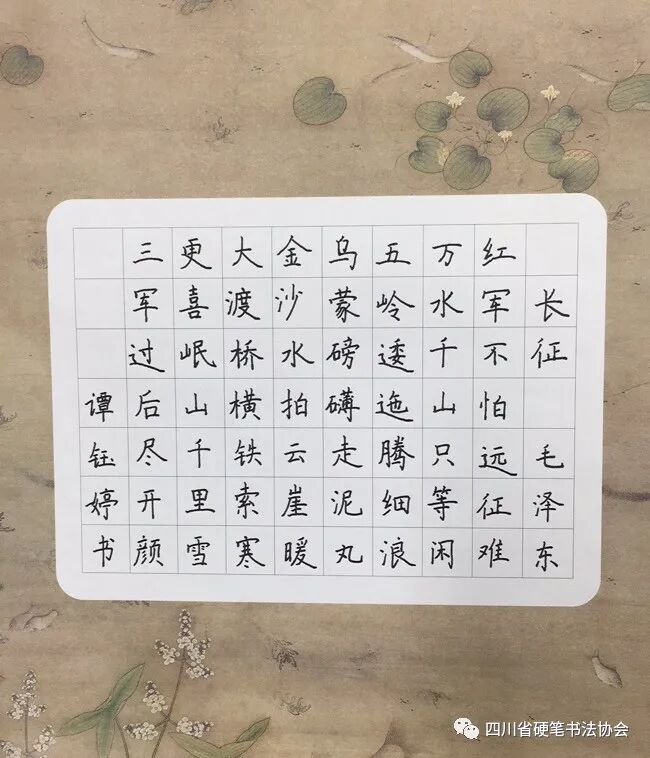 长征 毛泽东
红军不怕远征难
万水千山只等闲
五岭逶迤腾细浪
乌蒙磅礴走泥丸
金沙水拍云崖暖
大渡桥横铁索寒
更喜岷山千里雪
三军过后尽开颜
谭钰婷书
四川省硬笔书法协会